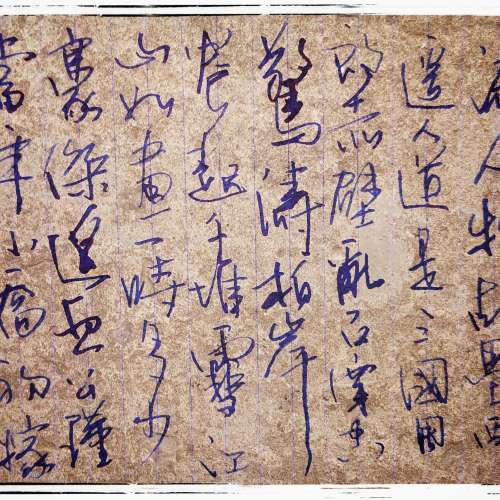 流人物故壘西
邊人道是三國周
郎赤壁亂石穿空
驚濤拍岸
捲起千堆雪江
山如畫一時多少
豪傑遙想公瑾
當年小喬初嫁